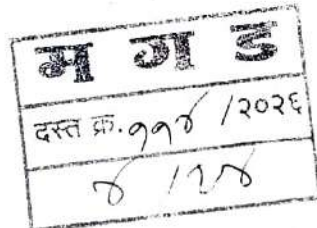 म ग ड
दस्त क्र. ११४ /२०२६
४ /१४